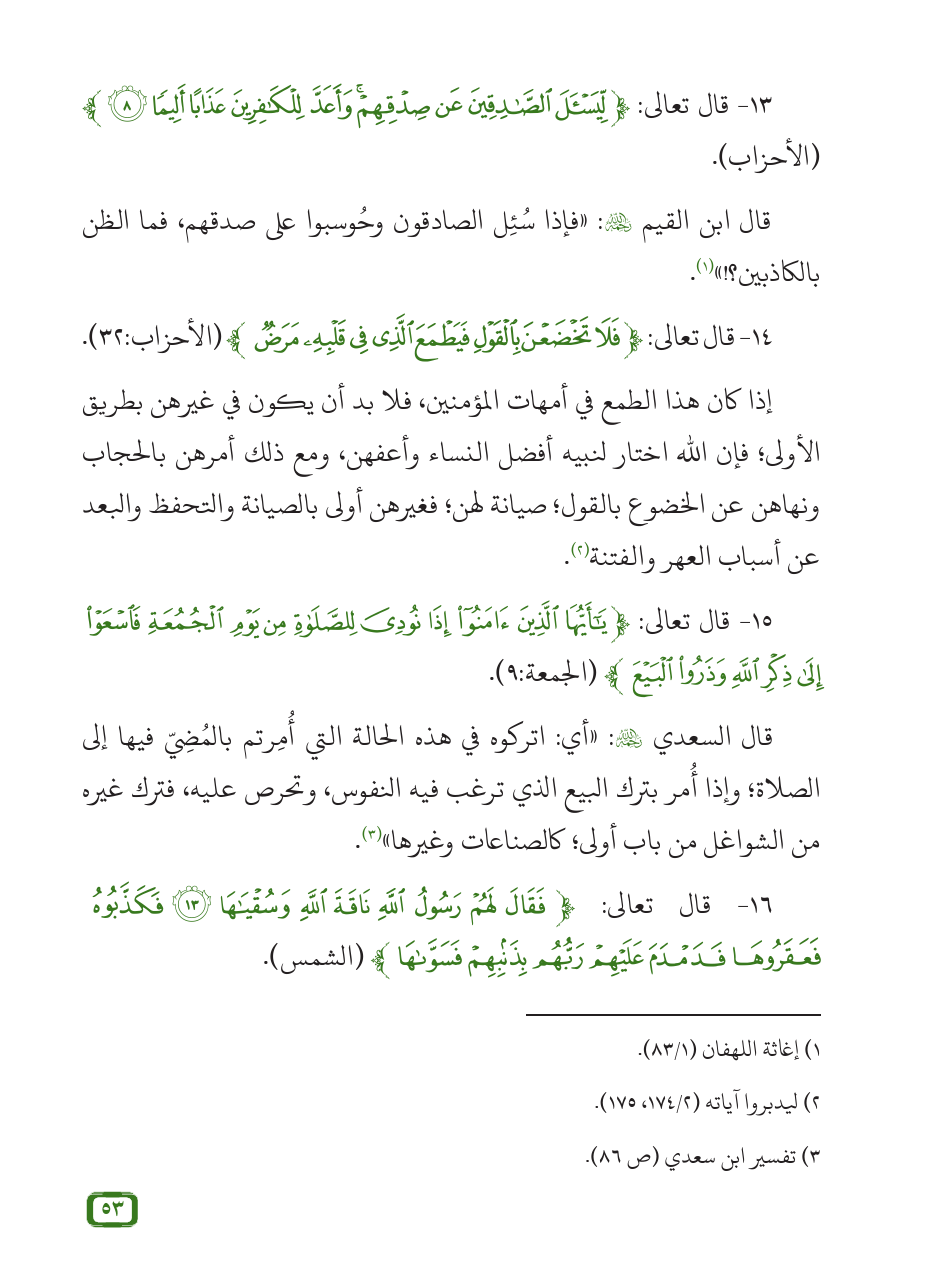 ١٣- قال تعالى: ﴿ لِّيَسْـَٔلَ ٱلصَّـٰدِقِينَ عَن صِدْقِهِمْ ۚ وَأَعَدَّ لِلْكَـٰفِرِينَ عَذَابًا أَلِيمًا ٨ ﴾
(الأحزاب).
قال ابن القيم رحمه الله: «فإذا سُئِل الصادقون وحُوسبوا على صدقهم، فما الظن
بالكاذبين؟!»(١).
١٤- قال تعالى: ﴿ فَلَا تَخْضَعْنَ بِٱلْقَوْلِ فَيَطْمَعَ ٱلَّذِى فِى قَلْبِهِۦ مَرَضٌ ﴾ (الأحزاب:٣٢).
إذا كان هذا الطمع في أمهات المؤمنين، فلا بد أن يكون في غيرهن بطريق
الأولى؛ فإن الله اختار لنبيه أفضل النساء وأعفهن، ومع ذلك أمرهن بالحجاب
ونهاهن عن الخضوع بالقول؛ صيانة لهن؛ فغيرهن أولى بالصيانة والتحفظ والبعد
عن أسباب العهر والفتنة(٢).
١٥- قال تعالى: ﴿ يَـٰٓأَيُّهَا ٱلَّذِينَ ءَامَنُوٓا۟ إِذَا نُودِىَ لِلصَّلَوٰةِ مِن يَوْمِ ٱلْجُمُعَةِ فَٱسْعَوْا۟
إِلَىٰ ذِكْرِ ٱللَّهِ وَذَرُوا۟ ٱلْبَيْعَ ﴾ (الجمعة:٩).
قال السعدي رحمه الله: «أي: اتركوه في هذه الحالة التي أُمِرتم بالمُضِيّ فيها إلى
الصلاة؛ وإذا أُمر بترك البيع الذي ترغب فيه النفوس، وتحرص عليه، فترك غيره
من الشواغل من باب أولى؛ كالصناعات وغيرها»(٣).
١٦- قال تعالى: ﴿ فَقَالَ لَهُمْ رَسُولُ ٱللَّهِ نَاقَةَ ٱللَّهِ وَسُقْيَـٰهَا ١٣ فَكَذَّبُوهُ
فَعَقَرُوهَا فَدَمْدَمَ عَلَيْهِمْ رَبُّهُم بِذَنۢبِهِمْ فَسَوَّىٰهَا ﴾ (الشمس).
١) إغاثة اللهفان (٨٣/١).
٢) ليدبروا آياته (١٧٤/٢، ١٧٥).
٣) تفسير ابن سعدي (ص ٨٦).
٥٣